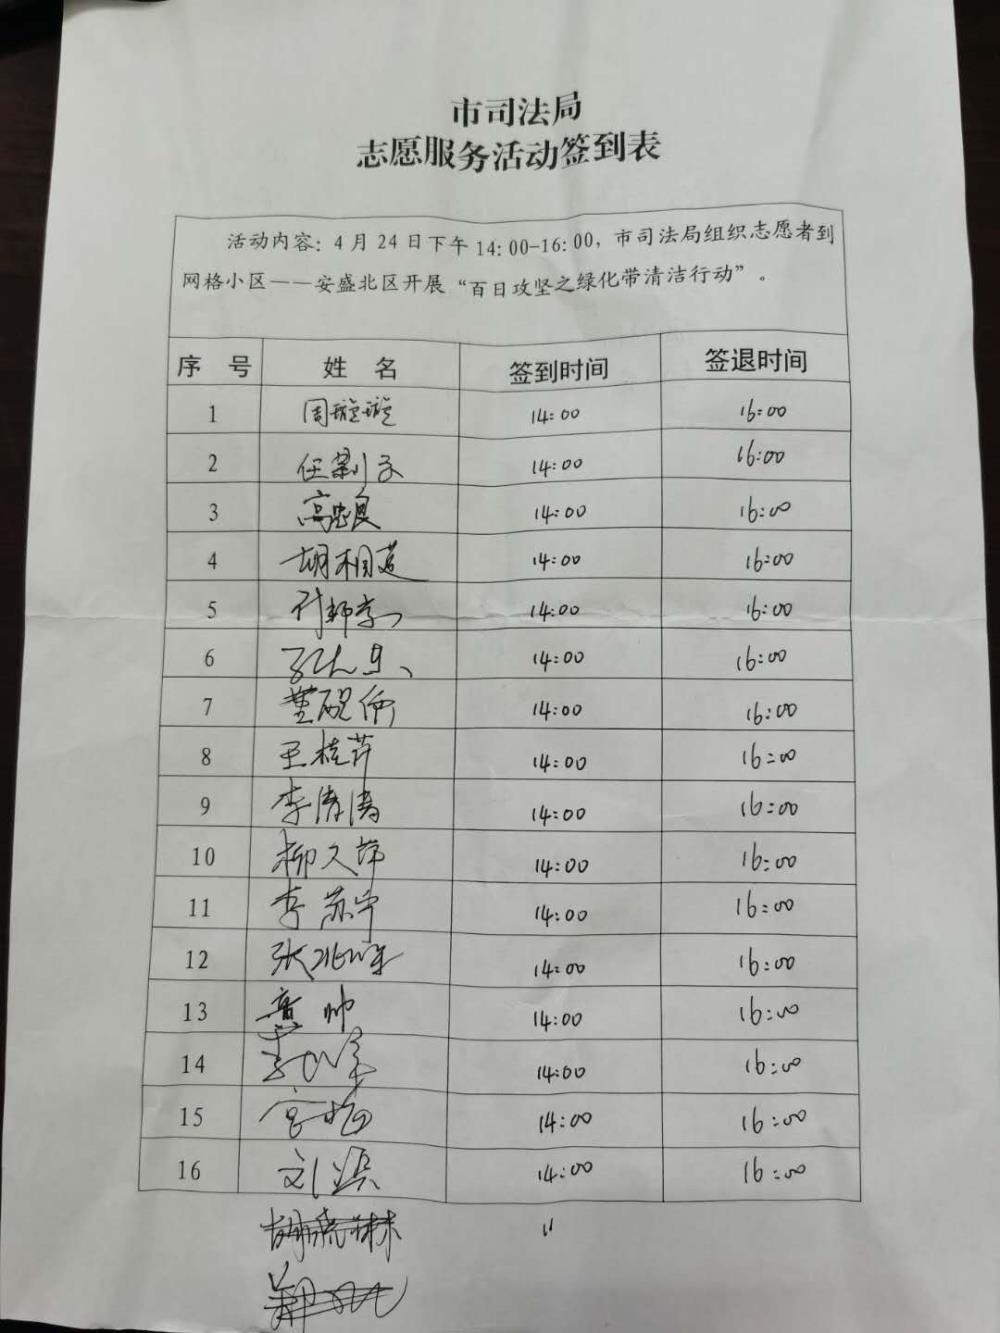 市司法局
志愿服务活动签到表
活动内容：4月24日下午14:00-16:00，市司法局组织志愿者到
网格小区——安盛北区开展“百日攻坚之绿化带清洁行动”。
序 号 姓 名 签到时间 签退时间
1 周璇璇 14:00 16:00
2 14:00 16:00
3 高忠良 14:00 16:00
4 胡相莲 14:00 16:00
5 14:00 16:00
6 14:00 16:00
7 董砚倩 14:00 16:00
8 王桂芹 14:00 16:00
9 李清涛 14:00 16:00
10 14:00 16:00
11 李苏宁 14:00 16:00
12 张兆峰 14:00 16:00
13 14:00 16:00
14 14:00 16:00
15 14:00 16:00
16 14:00 16:00
〃